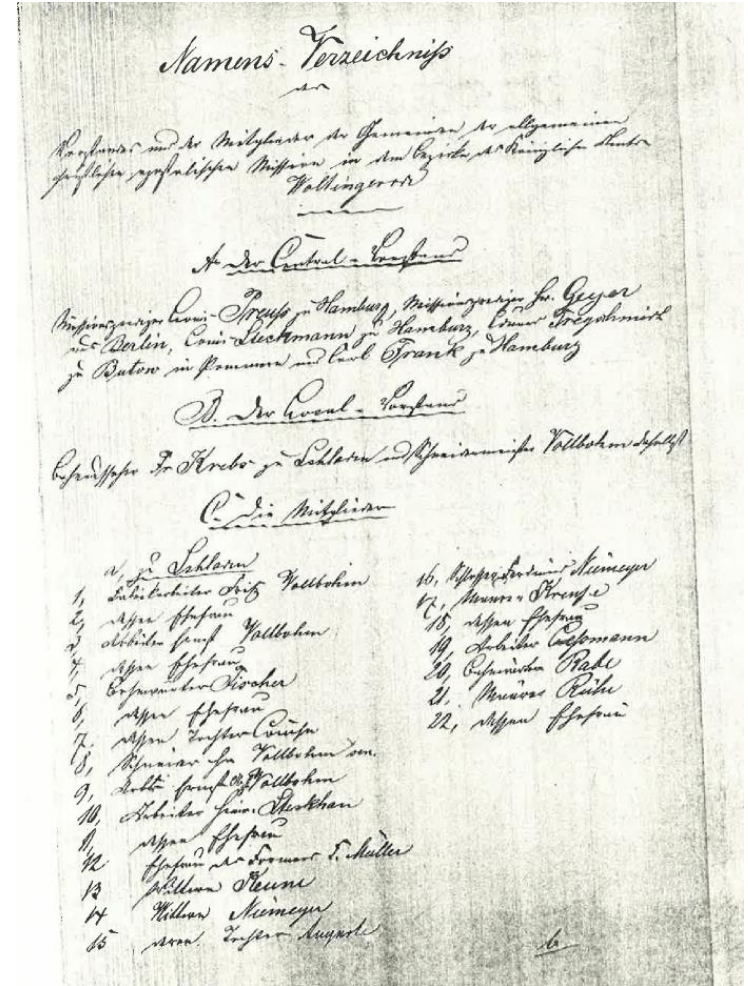 Namens-Verzeichniß
des
Vorstandes und der Mitglieder der Gemeinden der allgemeinen
christlichen apostolischen Mission in dem Bezirke des Königlichen Amts
Wöltingerode
A. Der Central-Vorstand
Missionsprediger Louis Preuß zu Hamburg, Missionsprediger Fr. Geyer
aus Berlin, Louis Steckmann zu Hamburg, Eduard
zu Bütow in Pommern und Carl Frank zu Hamburg
B. Der Local-Vorstand
Fr Krebs zu Schladen und Schneidermeister Vollbohm daselbst
C. Die Mitglieder
a, zu Schladen
1, Fabrikarbeiter Fritz Vollbohm
2, dessen Ehefrau
3, Arbeiter Vollbohm
4, dessen Ehefrau
5, Bahnwärter Fischer
6, dessen Ehefrau
7. dessen Tochter Louise
8, Schneider Vollbohm sen.
9, Ernst Vollbohm
10, Arbeiter Heinr. Steckhan
11, dessen Ehefrau
12 Ehefrau des Formers F. Müller
13 Wittwe Keune
14 Wittwe Niemeyer
15 deren Tochter Auguste
16, Schlosser Ferdinand Niemeyer
17, Maurer Krenge
18, dessen Ehefrau
19, Arbeiter
20, Bahnwärter Rabe
21. Maurer Rühe
22, dessen Ehefrau
b